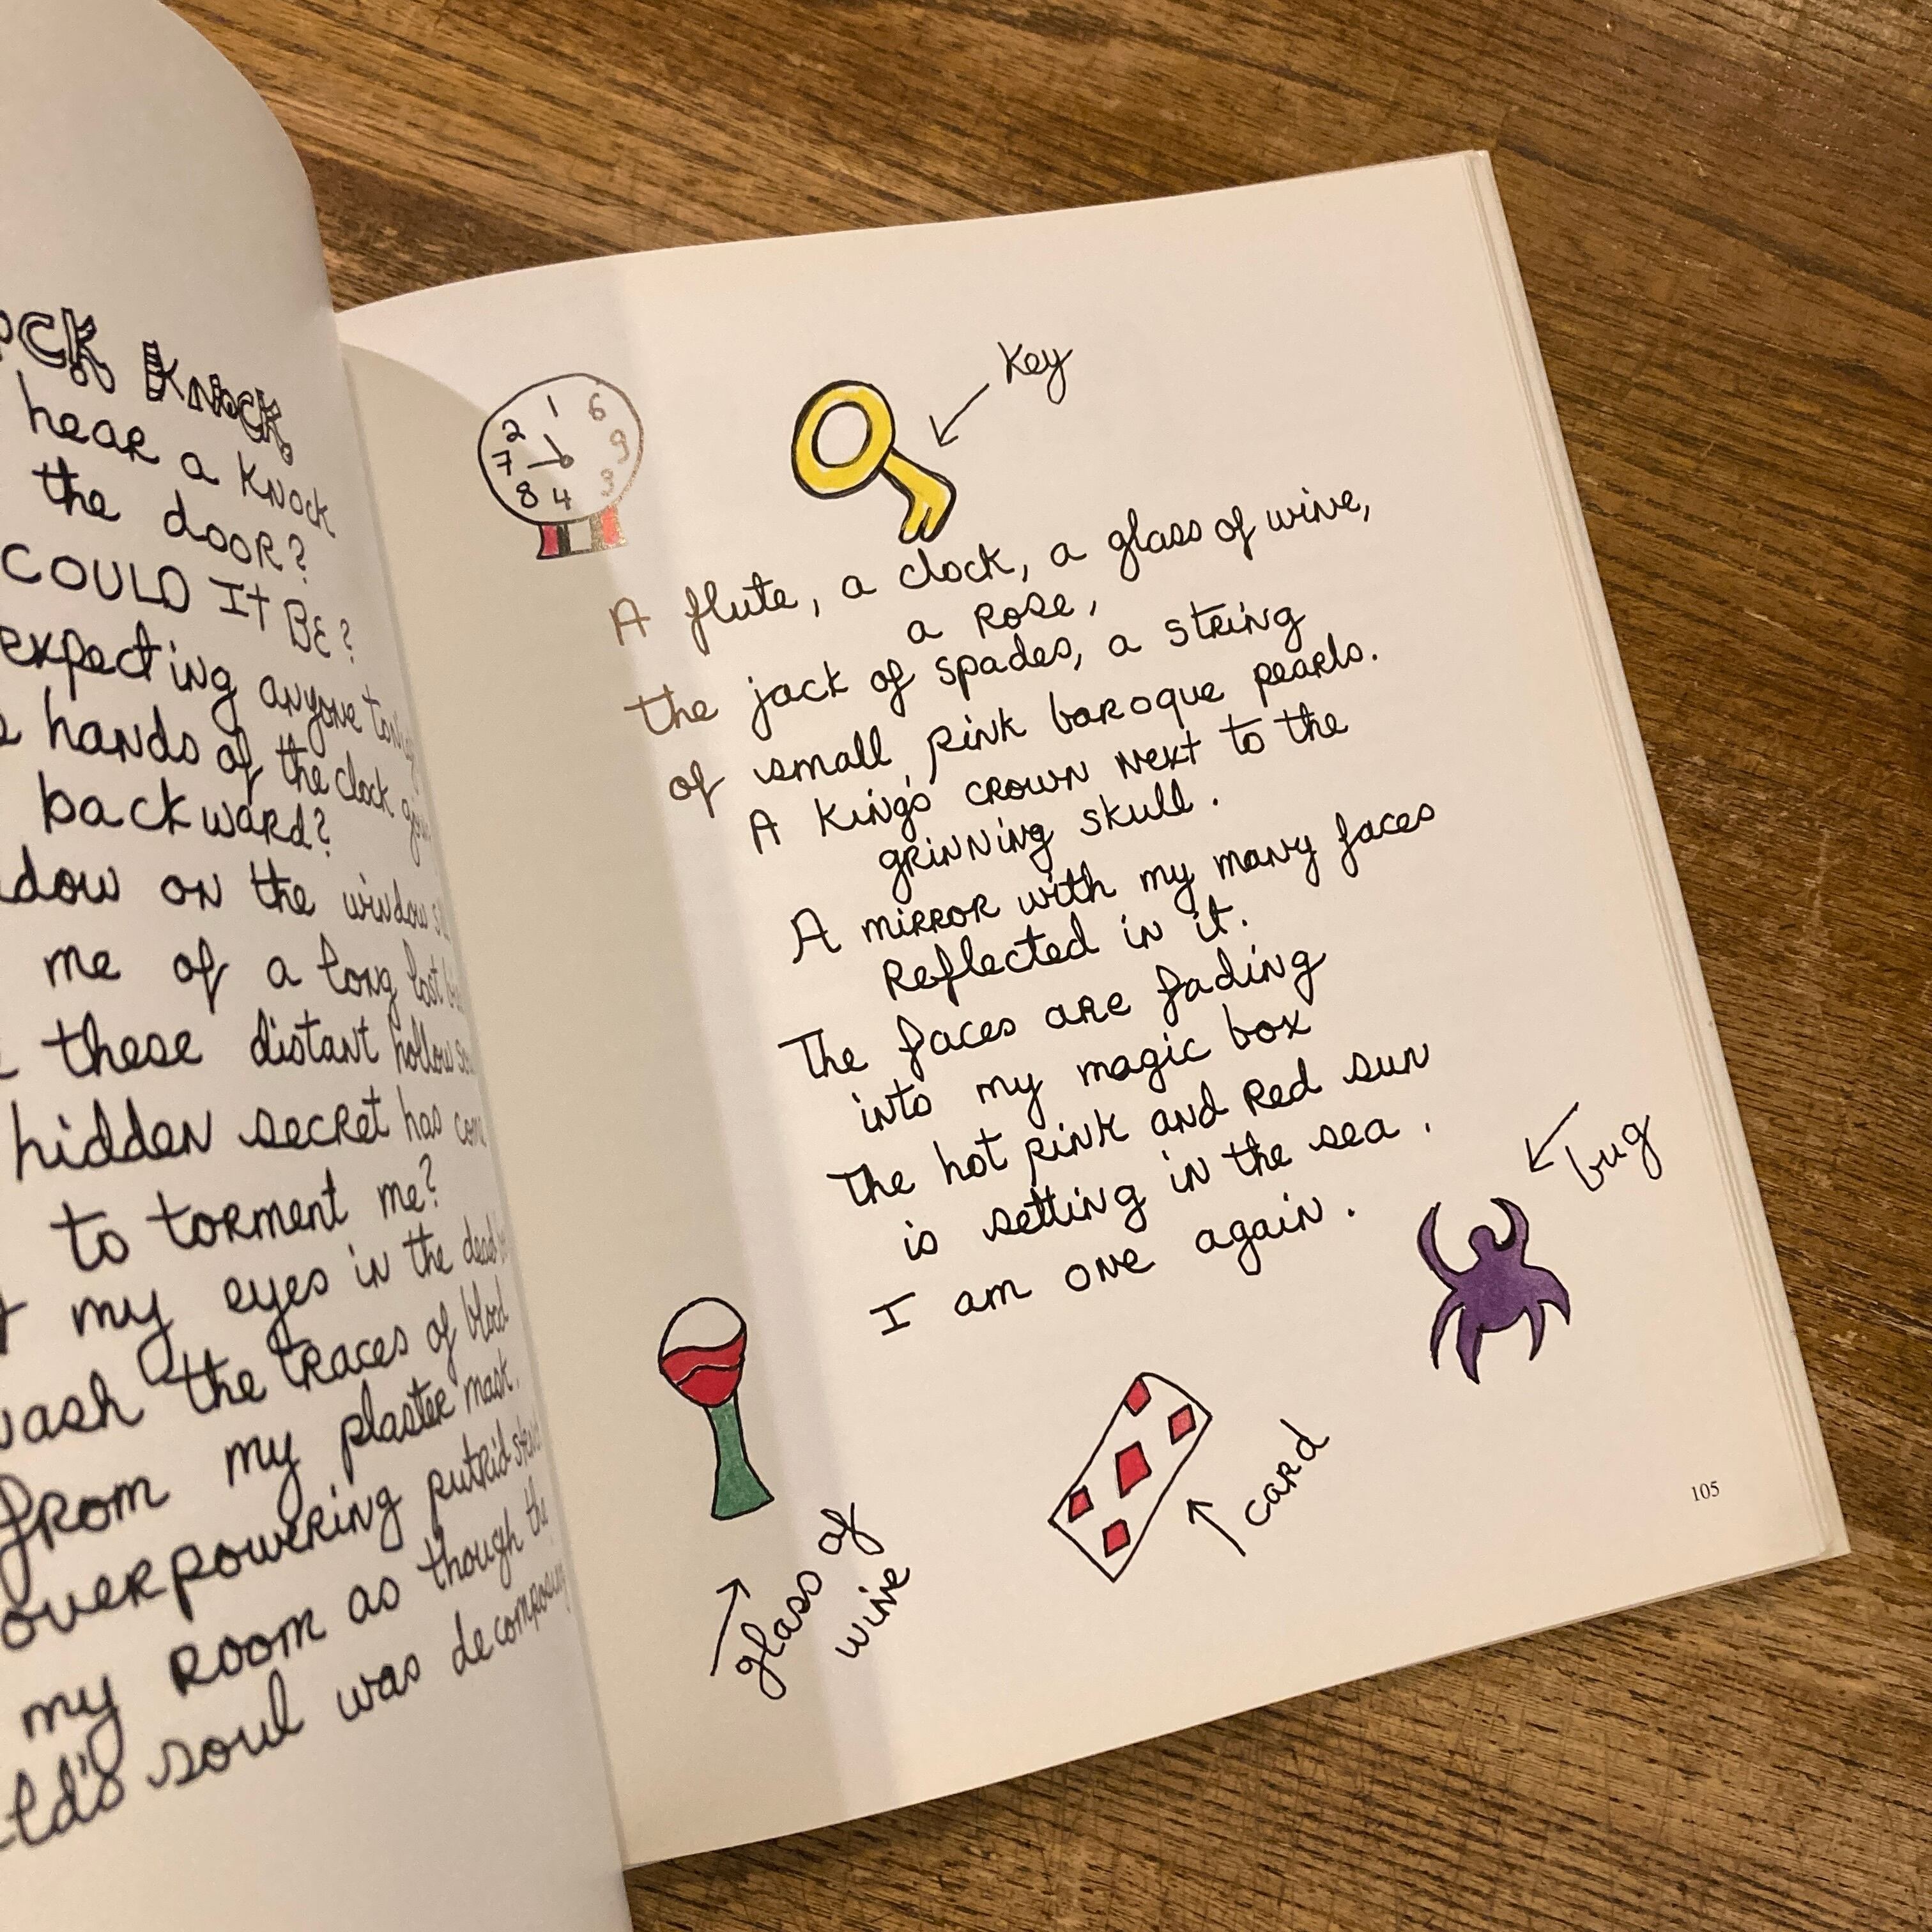 OCK KNOCK.
hear a knock
the door?
COULD It BE?
expecting anyone
hands of the clock
backward?
on the window
me of a long lost
these distant hollow
hidden secret has
to torment me?
my eyes in the dead
wash the traces of blood
from my plaster mask.
overpowering putrid
my room as though the
soul was decomposing
1 6 9 3 4 8 7 2
Key
A flute, a clock, a glass of wine,
a rose,
the jack of spades, a string
of small, pink baroque pearls.
A king's crown next to the
grinning skull.
A mirror with my many faces
Reflected in it.
The faces are fading
into my magic box
The hot pink and red sun
is setting in the sea.
I am one again.
bug
glass of
wine
card
105